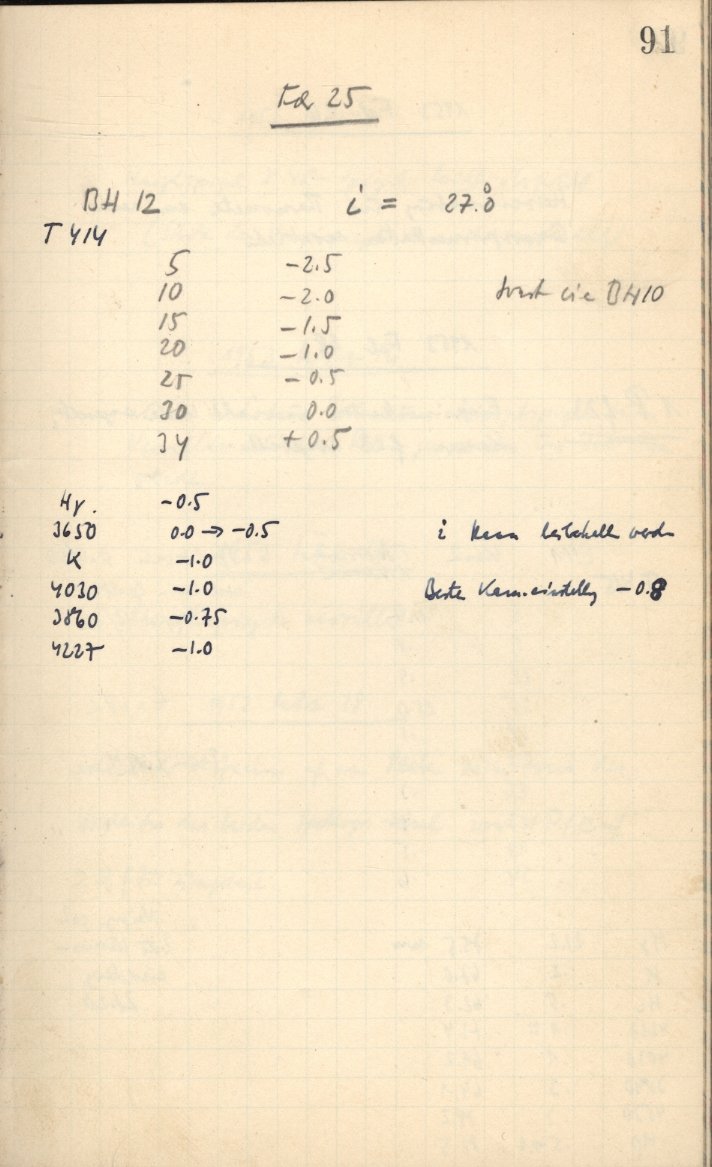 91
Feb 25
BH 12 i = 27.°0
T 414
5 -2.5
10 -2.0 sonst wie BH10
15 -1.5
20 -1.0
25 -0.5
30 0.0
34 +0.5
Hγ. -0.5
3650 0.0 → -0.5 i kann beibehalten werden
K -1.0
4030 -1.0 Beste Kam.einstellg -0.8
3860 -0.75
4227 -1.0